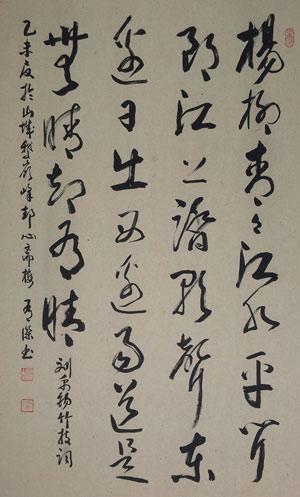 楊柳青々江水平聞
郎江上踏歌聲東
邊日出西邊雨道是
無晴卻有晴
劉禹錫竹枝詞
乙未夏於山城